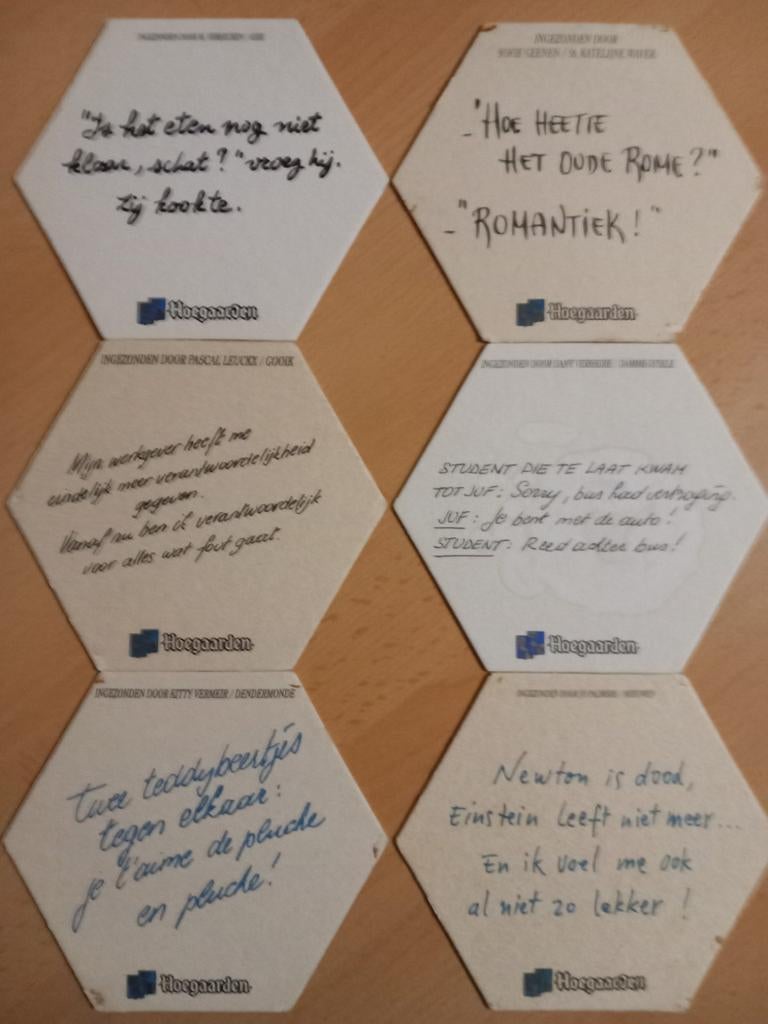 INGEZONDEN DOOR
"Is het eten nog niet
klaar, schat?" vroeg hij.
Zij kookte.
Hoegaarden
INGEZONDEN DOOR
GEENEN / St. KATELIJNE WAVER
- "HOE HEETTE
HET OUDE ROME?"
- "ROMANTIEK!"
Hoegaarden
INGEZONDEN DOOR PASCAL LEUCKX / GOOIK
Mijn werkgever heeft me
eindelijk meer verantwoordelijkheid
gegeven.
Vanaf nu ben ik verantwoordelijk
voor alles wat fout gaat.
Hoegaarden
INGEZONDEN DOOR
STUDENT DIE TE LAAT KWAM
TOT JUF: Sorry, bus had vertraging.
JUF: Je bent met de auto!
STUDENT: Reed achter bus!
Hoegaarden
INGEZONDEN DOOR KITTY VERMEIR / DENDERMONDE
Twee teddybeertjes
tegen elkaar:
je t'aime de pluche
en pluche!
Hoegaarden
INGEZONDEN DOOR
Newton is dood,
Einstein leeft niet meer...
En ik voel me ook
al niet zo lekker!
Hoegaarden